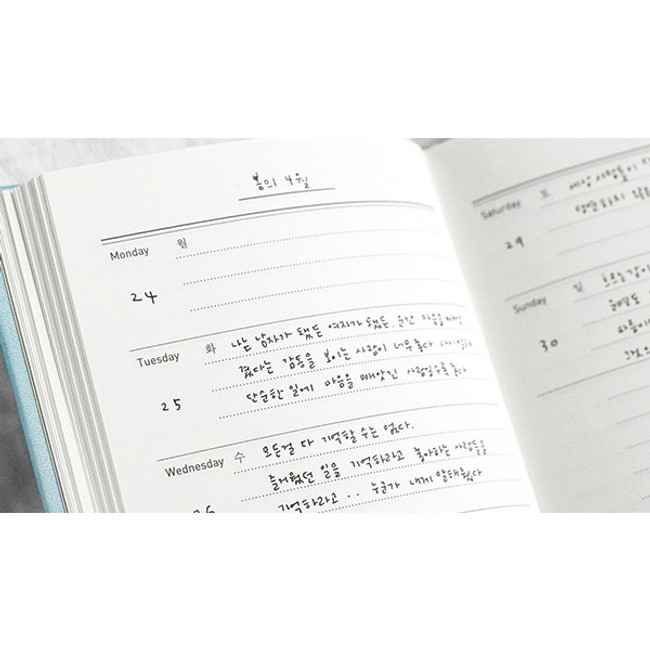 봄의 4월
Monday 월
24
Tuesday 화
나는 남자가 됐든 여자가 됐든, 순간 마음을
25
겼다는 감동을 보이는 사람이 너무 좋다
단순한 일에 마음을 빼앗긴 사람일수록 좋다
Wednesday 수
모든걸 다 기억할 수는 없다.
26
즐거웠던 일을 기억하라고 좋아하는 사람들을
기억하라고.. 누군가 내게 말해줬다
Saturday 토
세상 사람들이
29
Sunday 일
30